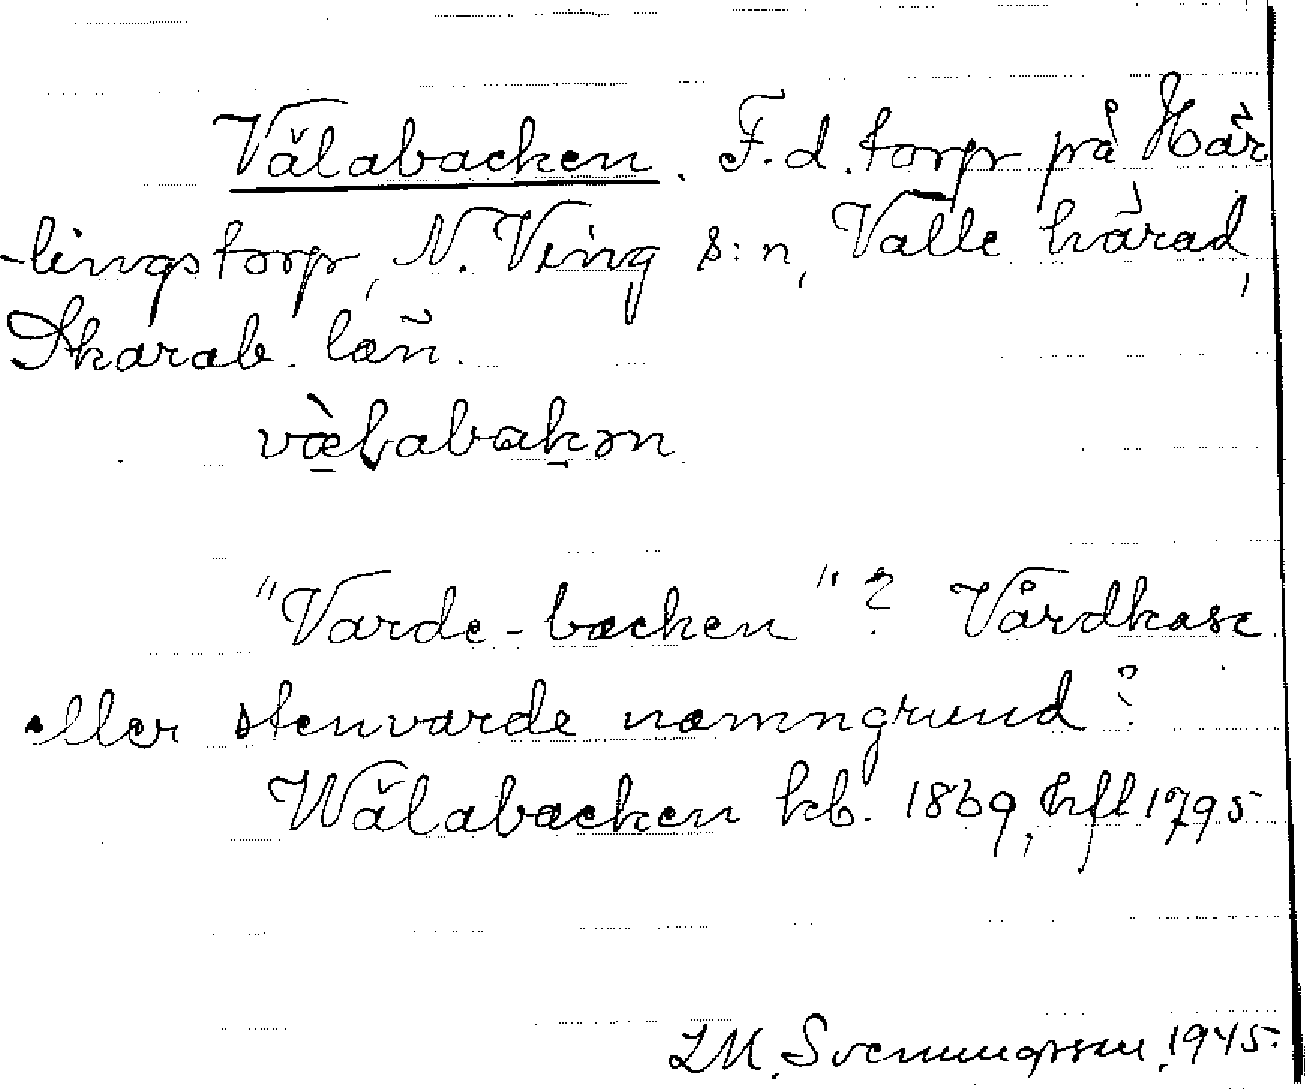 Välabacken. F. d. torp på Här
-lingstorp, N. Ving s:n, Valle härad,
Skarab. län.
væ̀ɽabakən
"Varde-backen"? Vårdkase
eller stenvarde namngrund?
Wälabacken kb. 1869, hfl 1795
LM. Svenungsson, 1945.